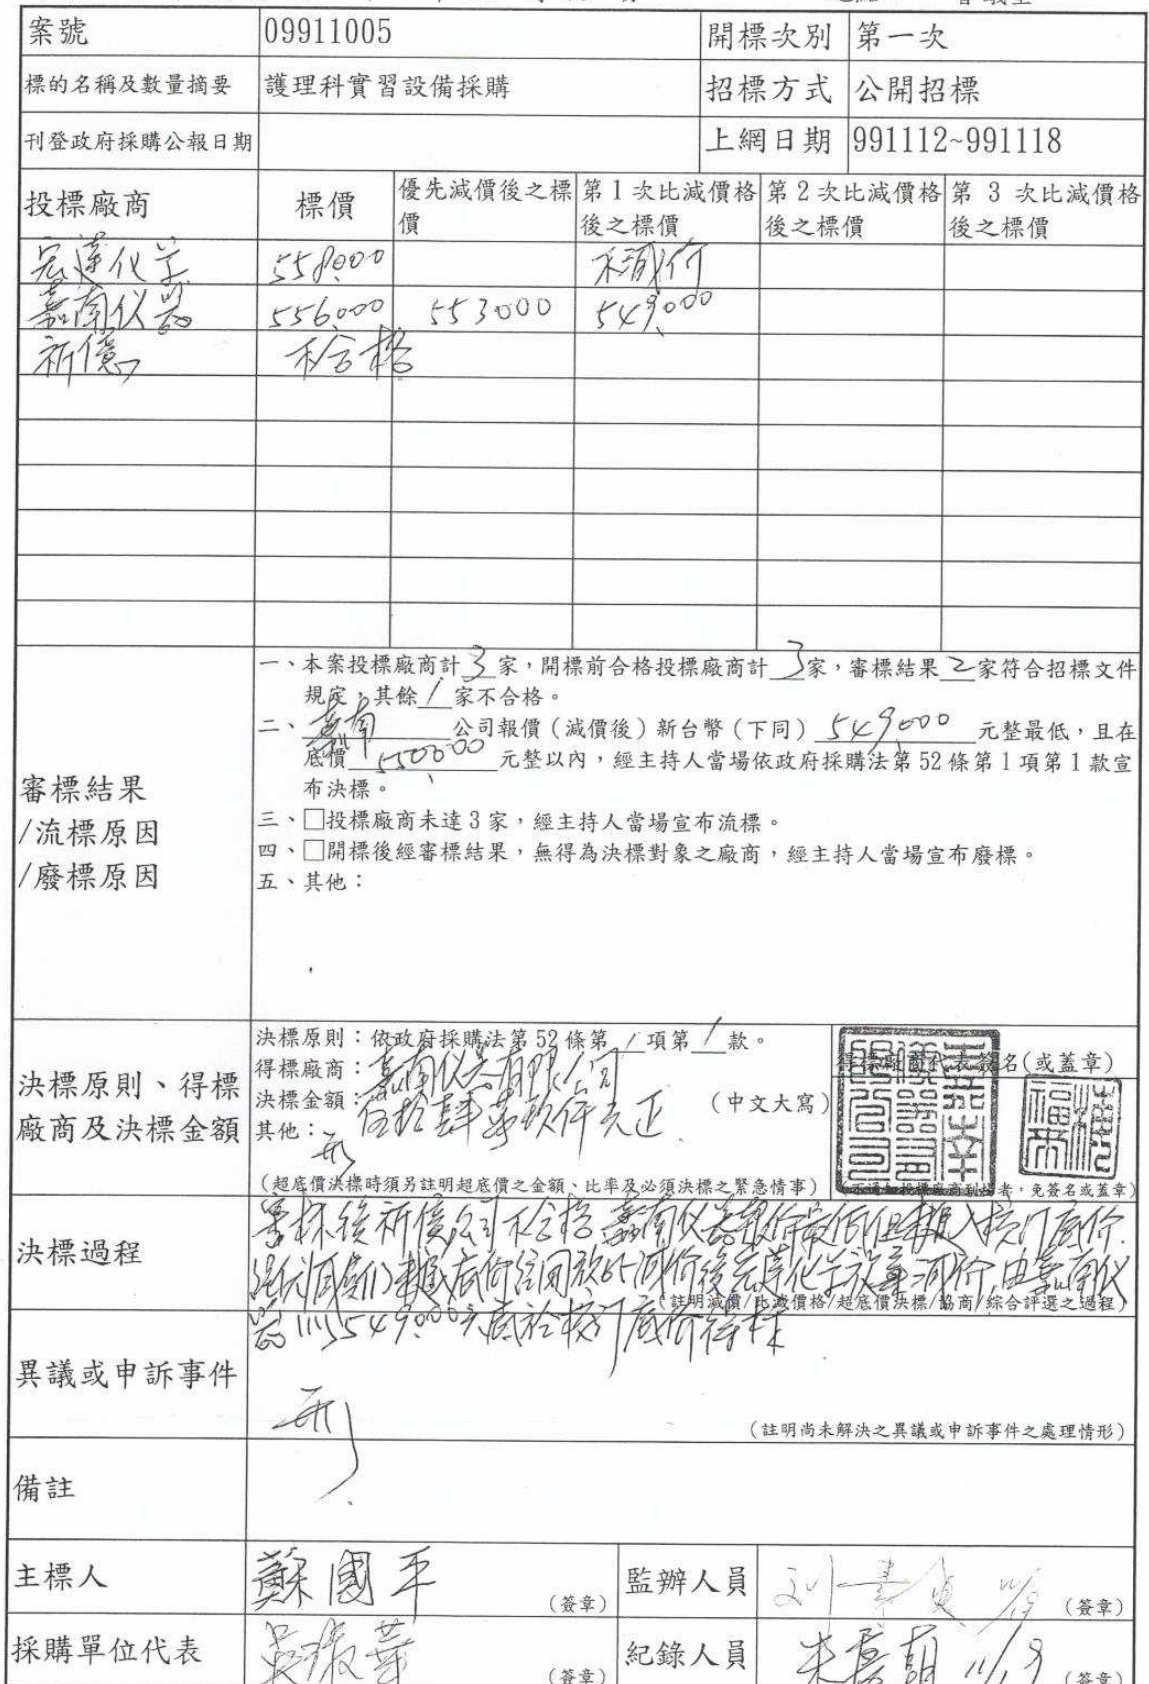 案號 09911005 開標次別 第一次
標的名稱及數量摘要 護理科實習設備採購 招標方式 公開招標
刊登政府採購公報日期 上網日期 991112~991118
投標廠商 標價 優先減價後之標價 第1次比減價格後之標價 第2次比減價格後之標價 第3次比減價格後之標價
宏達化学 558,000 不減价
嘉南仪器 556,000 553000 549,000
祈億 不合格
審標結果
/流標原因
/廢標原因
一、本案投標廠商計3家,開標前合格投標廠商計3家,審標結果2家符合招標文件
規定,其餘1家不合格。
二、嘉南公司報價(減價後)新台幣(下同)549,000元整最低,且在
底價550,000元整以內,經主持人當場依政府採購法第52條第1項第1款宣
布決標。
三、□投標廠商未達3家,經主持人當場宣布流標。
四、□開標後經審標結果,無得為決標對象之廠商,經主持人當場宣布廢標。
五、其他:
決標原則、得標
廠商及決標金額
決標原則:依政府採購法第52條第1項第1款。
得標廠商:嘉南仪器有限公司
決標金額:伍拾肆萬玖仟元正 (中文大寫)
其他:無
(超底價決標時須另註明超底價之金額、比率及必須決標之緊急情事)
得標廠商代表簽名(或蓋章)
(不通知投標廠商到場者,免簽名或蓋章)
決標過程
審標後祈億公司不合格 嘉南仪器報价最低但未進入核订底价.
底价經同放比減价後宏達化学放棄減价,由嘉南仪
(註明減價/比減價格/超底價決標/協商/綜合評選之過程)
器以549,000元低於核订底价得標
異議或申訴事件 無
(註明尚未解決之異議或申訴事件之處理情形)
備註
主標人 蘇國平 (簽章) 監辦人員 (簽章)
採購單位代表 吳振華 (簽章) 紀錄人員 11/19 (簽章)